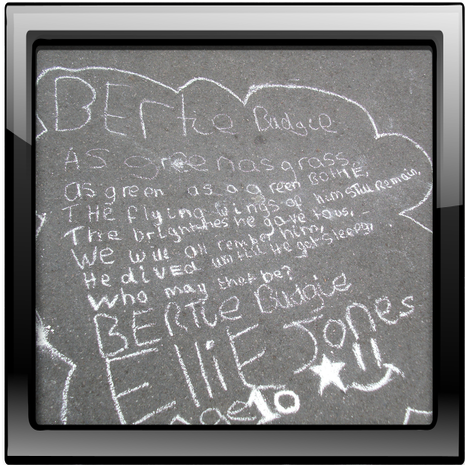 BERtie Budgie
AS green as grass
as green as a green BOttlE,
THE flying wings of him still remain,
The brightnes he gave to us,
We will all rember him,
He dived until He got sleepy
Who may that be?
BERTie Budgie
EllIE Jones
age 10